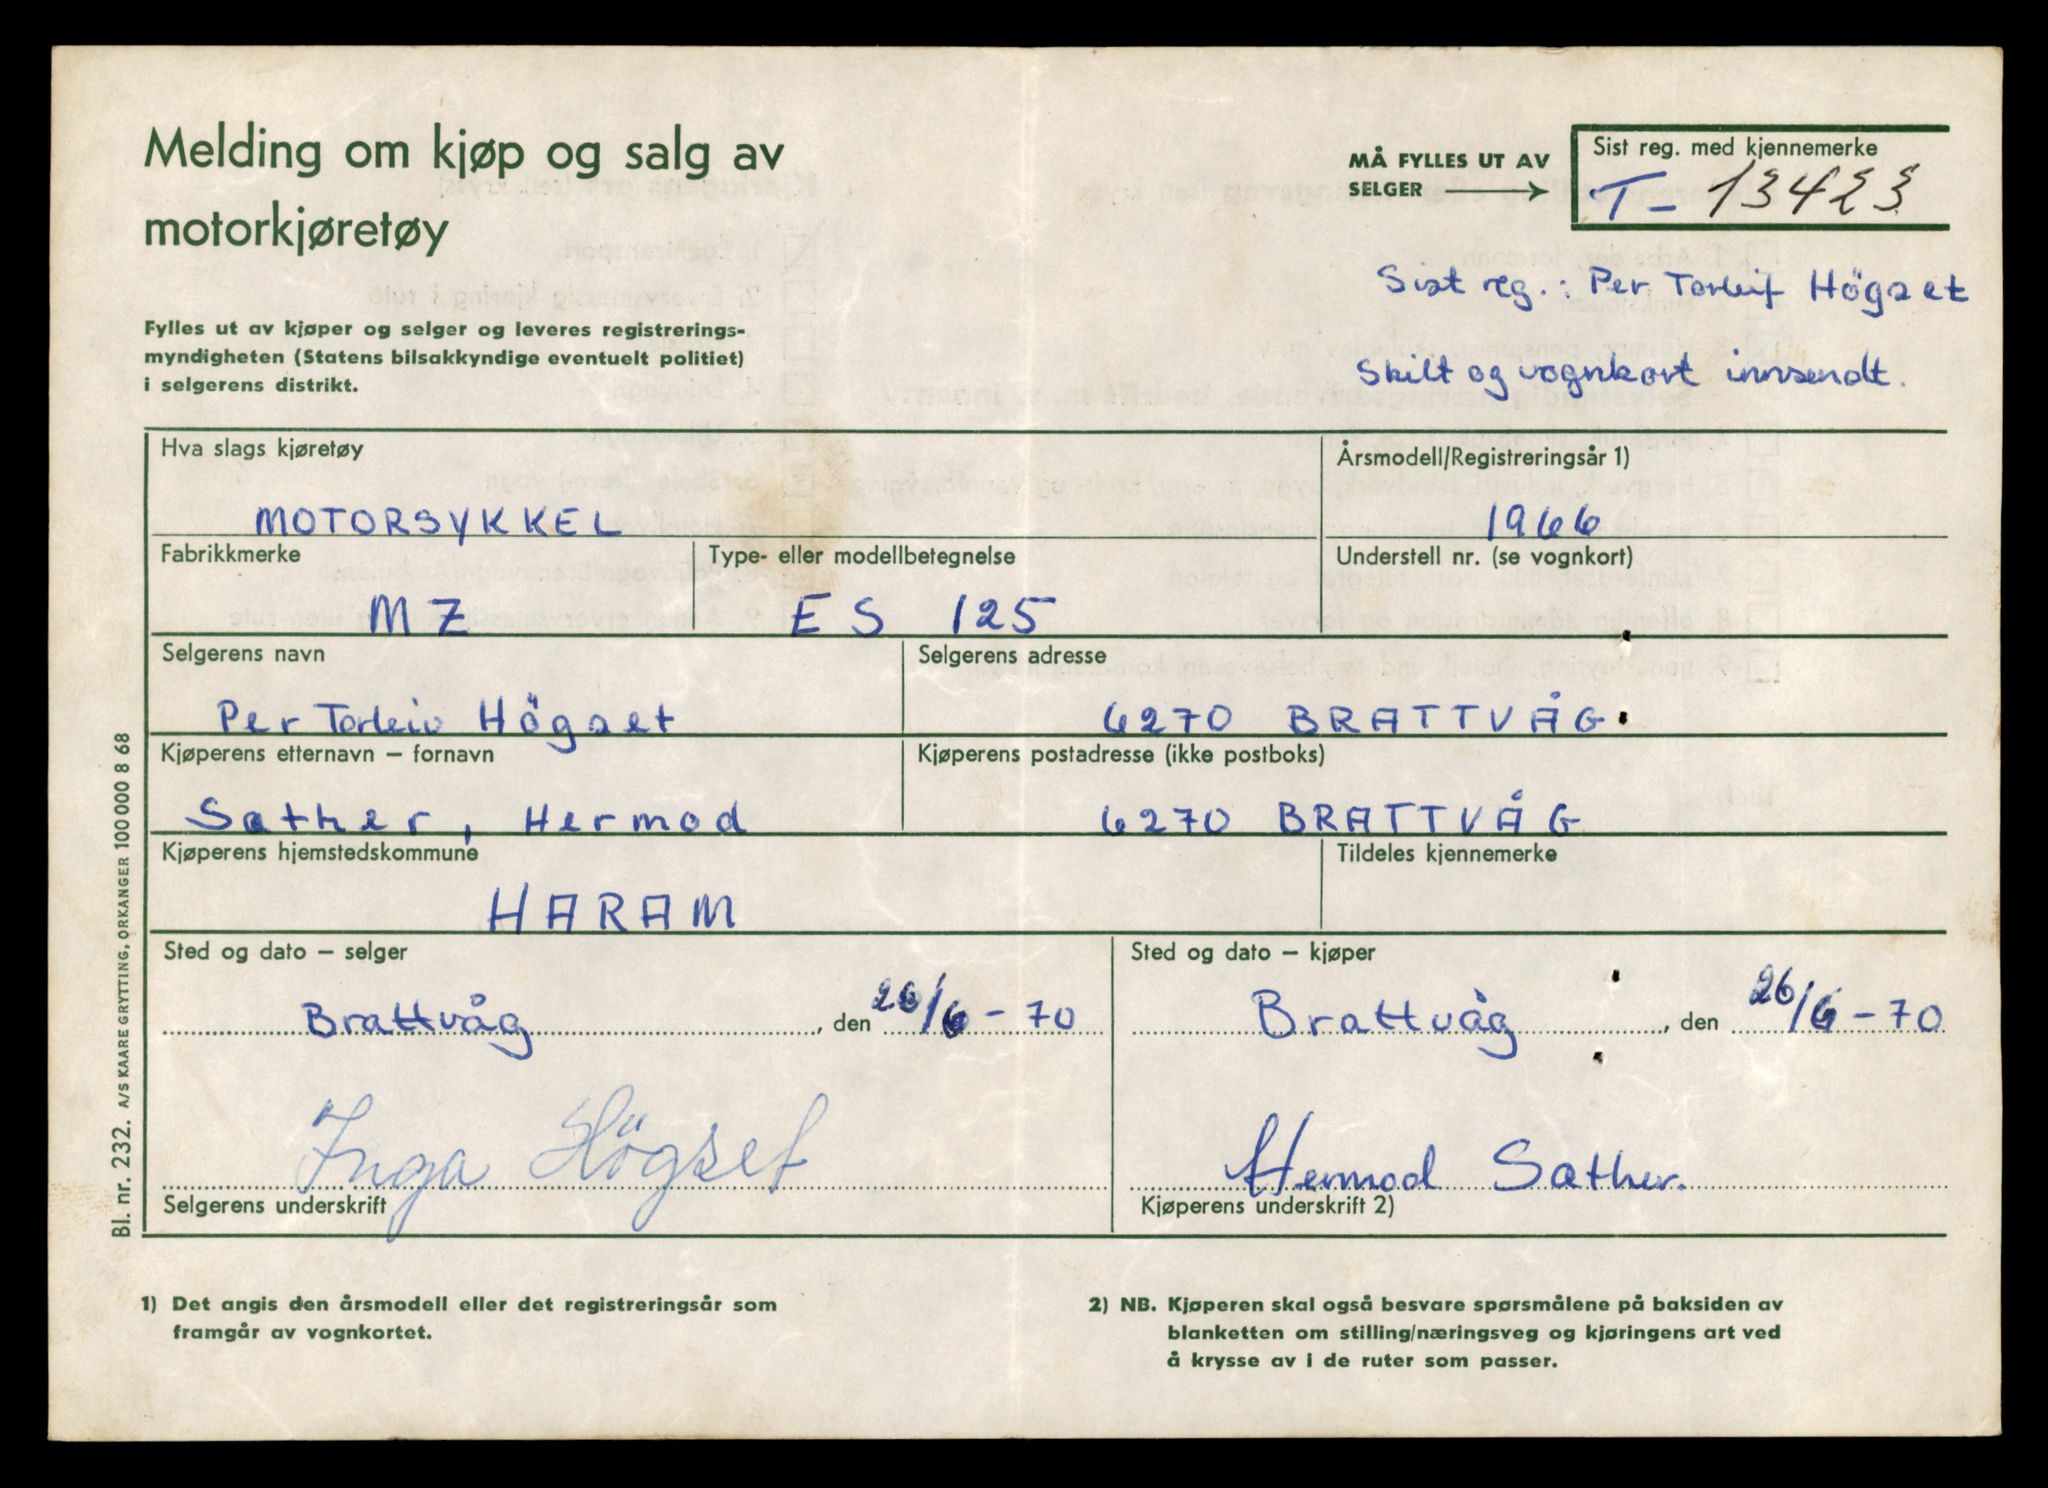 Melding om kjøp og salg av
motorkjøretøy
MÅ FYLLES UT AV
SELGER
Sist reg. med kjennemerke
T- 13423
Sist reg.: Per Torleif Högset
Skilt og vognkort innsendt.
Fylles ut av kjøper og selger og leveres registrerings-
myndigheten (Statens bilsakkyndige eventuelt politiet)
i selgerens distrikt.
Hva slags kjøretøy
MOTORSYKKEL
Årsmodell/Registreringsår 1)
1966
Fabrikkmerke
MZ
Type- eller modellbetegnelse
ES 125
Understell nr. (se vognkort)
Selgerens navn
Per Torleiv Högset
Selgerens adresse
6270 BRATTVÅG.
Kjøperens etternavn – fornavn
Sæther, Hermod
Kjøperens postadresse (ikke postboks)
6270 BRATTVÅG
Kjøperens hjemstedskommune
HARAM
Tildeles kjennemerke
Sted og dato – selger
Brattvåg, den 26/6-70
Sted og dato – kjøper
Brattvåg, den 26/6-70
Inga Högset
Selgerens underskrift
Hermod Sæther.
Kjøperens underskrift 2)
1) Det angis den årsmodell eller det registreringsår som
framgår av vognkortet.
2) NB. Kjøperen skal også besvare spørsmålene på baksiden av
blanketten om stilling/næringsveg og kjøringens art ved
å krysse av i de ruter som passer.
Bl. nr. 232. A/S KAARE GRYTTING, ORKANGER 100 000 8 68